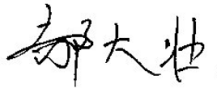 郝大壮